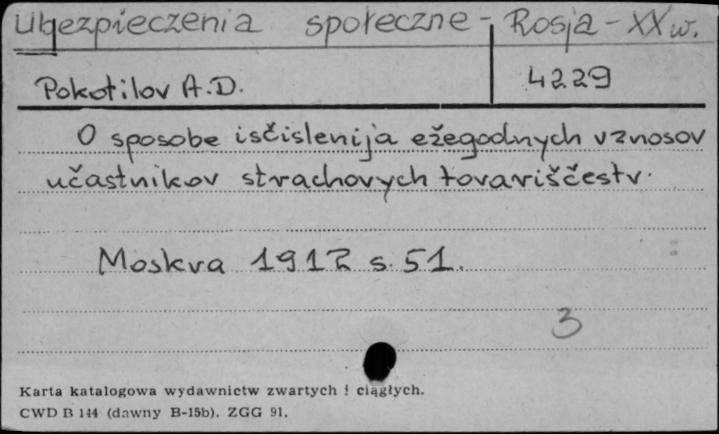 Ubezpieczenia społeczne - Rosja - XX w.
Pokotilov A.D. 4229
O sposobe isčislenija ežegodnych vznosov
učastnikov strachovych tovariščestv.
Moskva 1912 s. 51.
3
Karta katalogowa wydawnictw zwartych i ciągłych.
CWD B 144 (dawny B-15b). ZGG 91.